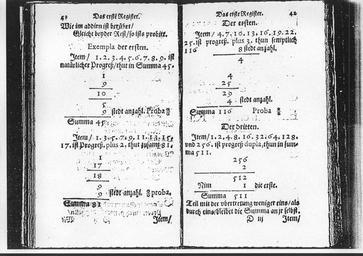 42 Das erst Register.
Wie im addirn ist berürt
Gleicht beyder Rest/ so ists probirt.
Exempla der ersten.
Item/ 1. 2. 3. 4. 5. 6. 7. 8. 9. ist
natürlicher Progreß/ thut in Summa 45.
1
9
10
5
9 stedt anzahl. Proba
Summa 45.
Item/ 1. 3. 5. 7. 9. 11. 13. 15.
17. ist Progreß, plus 2. thut zusam 81.
1
17
18
9
9 stedt anzahl. proba.
Summa 81
Item/
Das erste Register. 42
Der ersten.
Item/ 4. 7. 10. 13. 16. 19. 22.
25. ist progreß, plus 3. thun semptlich
116 8 stedt anzahl.
4
4
25
29
4 stedt anzahl.
Summa 116 Proba
Der dritten.
Item/ 1. 2. 4. 8. 16. 32. 64. 128.
und 256. ist progreß dupla, thun in sum
ma 511.
256
2
512
Nim 1 die erste.
Summa 511
Teil mit der ubertretung weniger eins/ als
durch eins/ bleibet die Summa an jr selbst.
D iij Item/